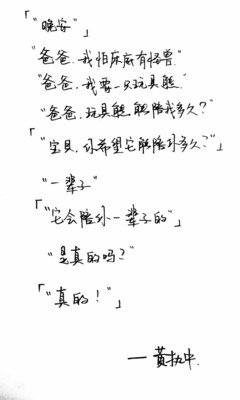 「"晚安"」
"爸爸,我怕床底有怪兽"
"爸爸,我要一只玩具熊"
"爸爸,玩具熊能陪我多久?"
「"宝贝,你希望它能陪你多久?"」
"一辈子"
「"它会陪你一辈子的"」
"是真的吗?"
「"真的!"」
——黄执中.